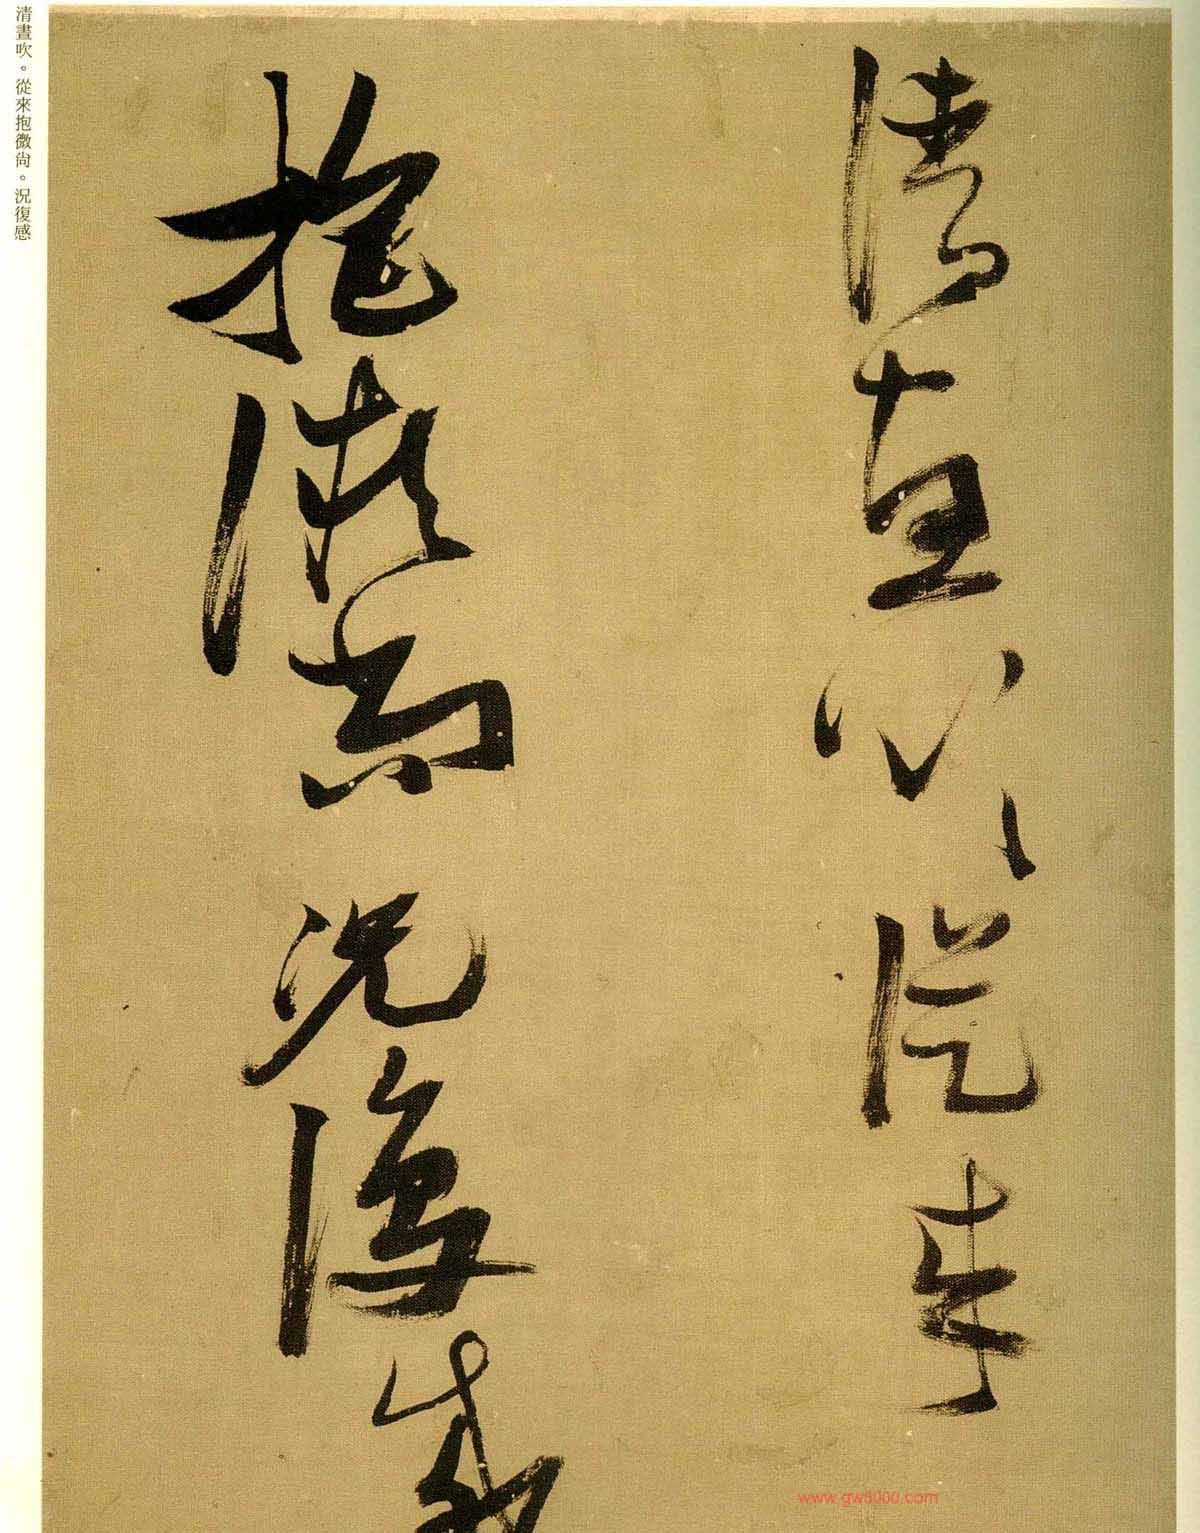 清晝吹從來
抱微尚況復感
清晝吹。從來抱微尚。況復感
www.gw8000.com